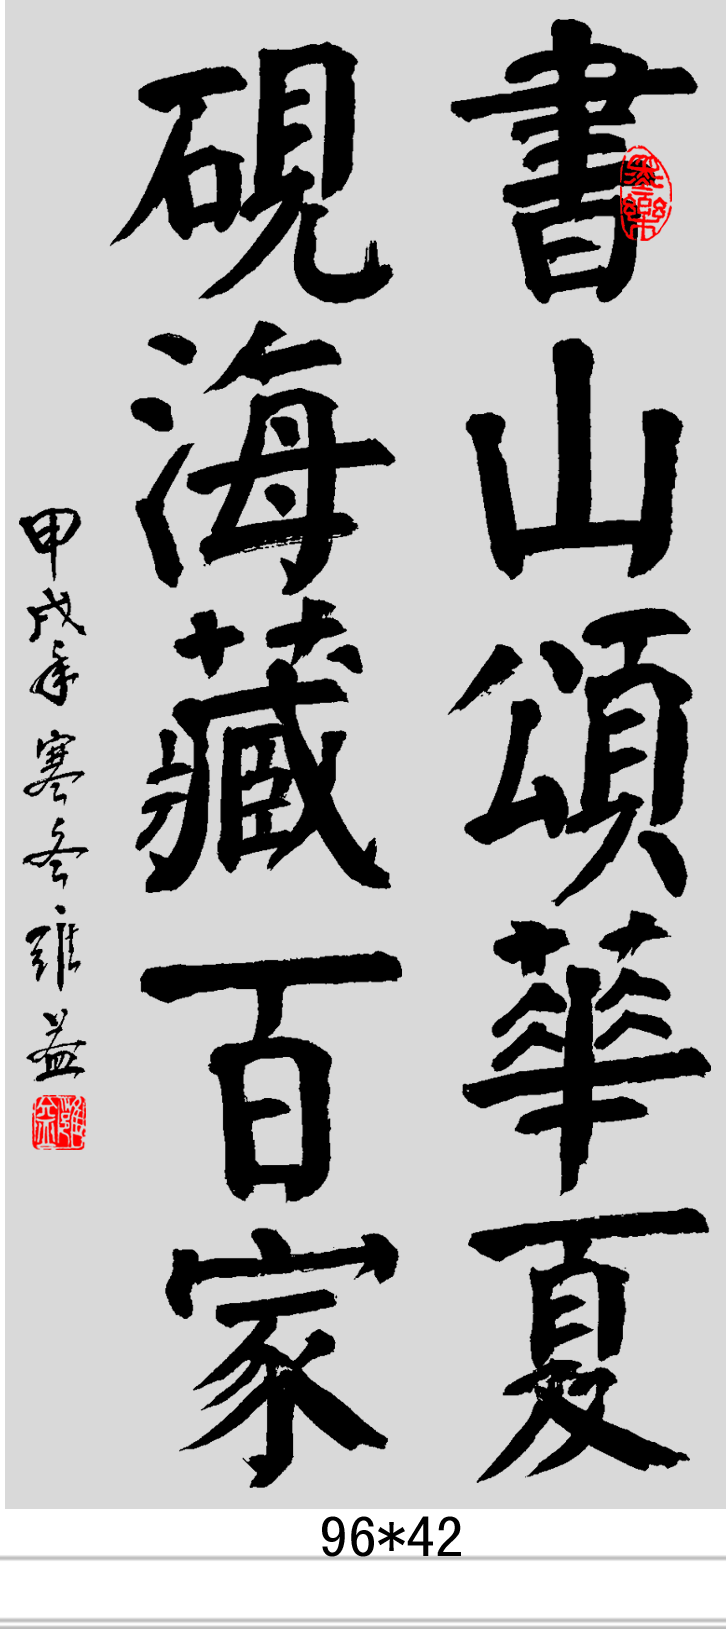 書山頌華夏
硯海藏百家
甲戌年寒冬雅益
96*42